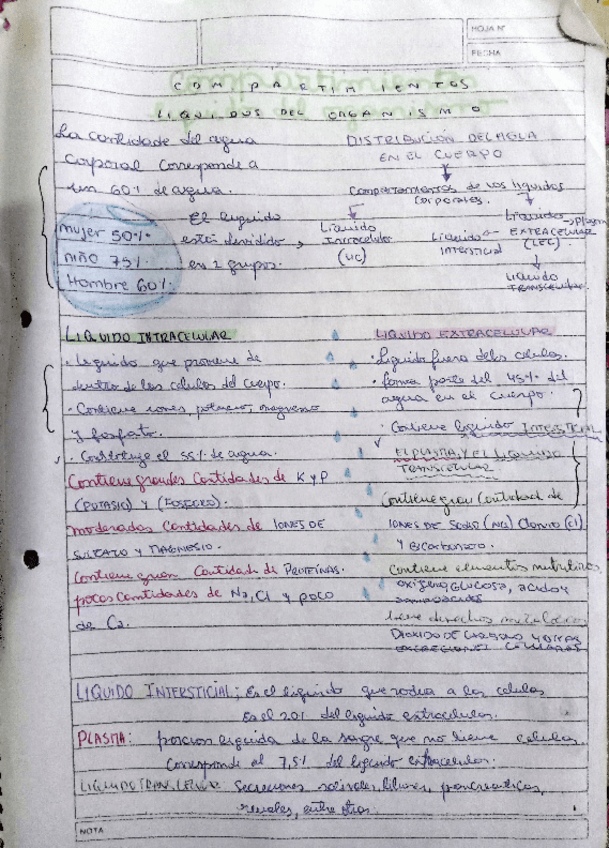 HOJA Nº
FECHA
COMPARTIMIENTOS
LIQUIDOS DEL ORGANISMO
La cantidade del agua
corporal corresponde a
un 60% de agua.
mujer 50%
niño 75%
Hombre 60%
El liquido
está dividido
en 2 grupos.
DISTRIBUCIÓN DEL AGUA
EN EL CUERPO
Compartimientos de los liquidos
corporales.
Liquido
Intracelular
(LIC)
Liquido
intersticial
Liquido → plasma
EXTRACELULAR
(LEC)
LIQUIDO
TRANSCELULAR
LIQUIDO INTRACELULAR
· Liquido que proviene de
dentro de las celulas del cuerpo.
· Contiene iones, potasio, magnesio
y fosfato.
· Constituye el 55% de agua.
Contiene grandes Cantidades de K y P
(POTASIO) Y (FOSFORO).
moderadas Cantidades de IONES DE
SULFATO Y MAGNESIO.
Contiene gran Cantidad de PROTEÍNAS.
pocas Cantidades de Na, Cl y poco
de Ca.
LIQUIDO EXTRACELULAR
· Liquido fuera de las celulas.
· forma parte del 45% del
agua en el cuerpo.
· Contiene liquido INTERSTICIAL
EL PLASMA, Y EL LIQUIDO
TRANSCELULAR
Contiene gran Cantidad de
IONES DE SODIO (Na) Cloruro (Cl)
Y Bicarbonato.
Contiene elementos nutritivos,
OXIGENO, GLUCOSA, acidos y
aminoacidos
tiene derechos metabolicos
DIOXIDO DE CARBONO Y OTRAS
EXCRECIONES CELULARES
LIQUIDO INTERSTICIAL: Es el liquido que rodea a las celulas
Es el 20% del liquido extracelular.
PLASMA: porcion liquida de la sagre que no tiene celulas
Corresponde al 7,5% del liquido extracelular.
LIQUIDO TRANSCELULAR secreciones salivales, biliares, pancreaticas,
renales, entre otras.
NOTA